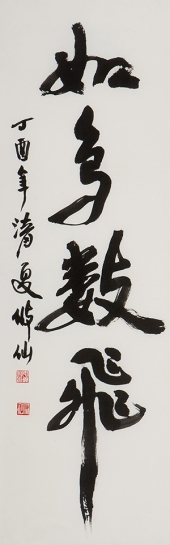 如鸟数飞
丁酉年清夏
仙